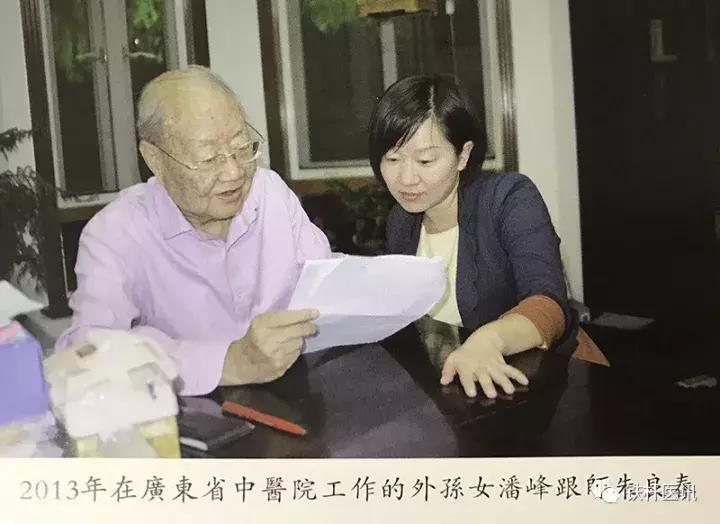 2013年在廣東省中醫院工作的外孫女潘峰跟師朱良春
铁杆医讯